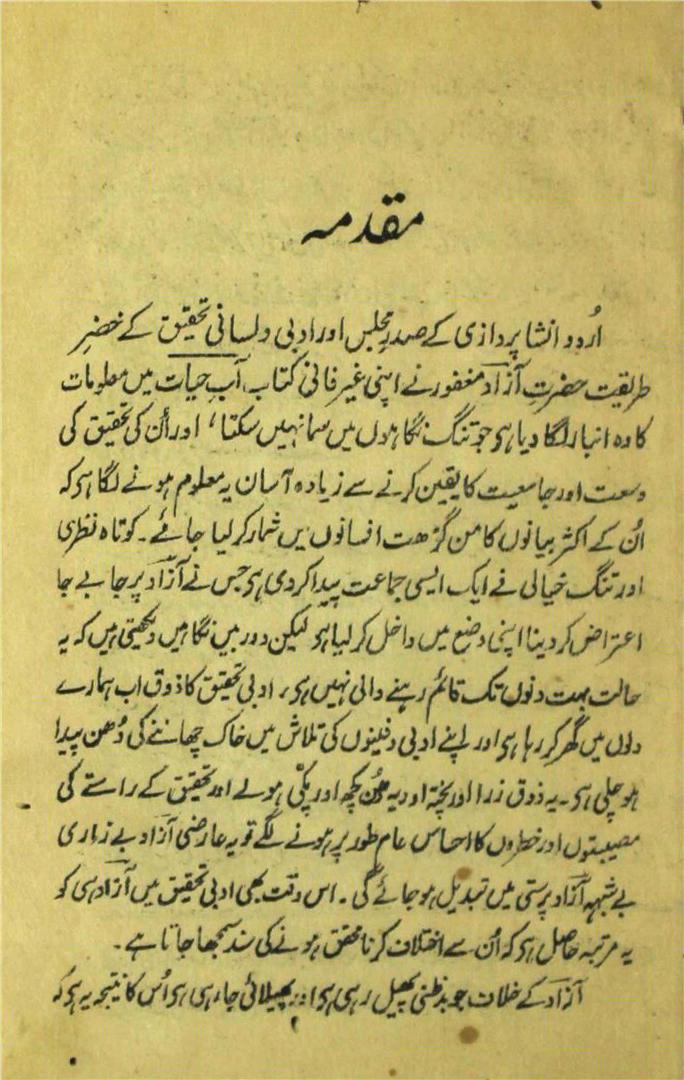 مقدمہ
اُردو انشا پردازی کے صدرِ مجلس اور ادبی و لسانی تحقیق کے خضرِ
طریقت حضرتِ آزاد مغفور نے اپنی غیر فانی کتاب، آبِ حیات میں معلومات
کا وہ انبار لگا دیا ہی جو تنگ نگاہوں میں سما نہیں سکتا، اور اُن کی تحقیق کی
وسعت اور جامعیت کا یقین کرنے سے زیادہ آسان یہ معلوم ہونے لگا ہی کہ
اُن کے اکثر بیانوں کا من گڑھت افسانوں میں شمار کر لیا جائے۔ کوتاہ نظری
اور تنگ خیالی نے ایک ایسی جماعت پیدا کردی ہی جس نے آزاد پر جا بے جا
اعتراض کر دینا اپنی وضع میں داخل کر لیا ہی لیکن دور بین نگاہیں دیکھتی ہیں کہ یہ
حالت بہت دنوں تک قائم رہنے والی نہیں ہی، ادبی تحقیق کا ذوق اب ہمارے
دلوں میں گھر کر رہا ہی اور اپنے ادبی دفینوں کی تلاش میں خاک چھاننے کی دُھن پیدا
ہو چلی ہی۔ یہ ذوق زرا اور پختہ اور یہ دھُن کچھ اور پکّی ہولے اور تحقیق کے راستے کی
مصیبتوں اور خطروں کا احساس عام طور پر ہونے لگے تو یہ عارضی آزاد بے زاری
بے شبہہ آزاد پرستی میں تبدیل ہو جائے گی۔ اس وقت بھی ادبی تحقیق میں آزاد ہی کو
یہ مرتبہ حاصل ہی کہ اُن سے اختلاف کرنا محقق ہونے کی سند سمجھا جاتا ہے۔
آزاد کے خلاف جو بدظنی پھیل رہی ہی اور پھیلائی جا رہی ہی اُس کا نتیجہ یہ ہی کہ